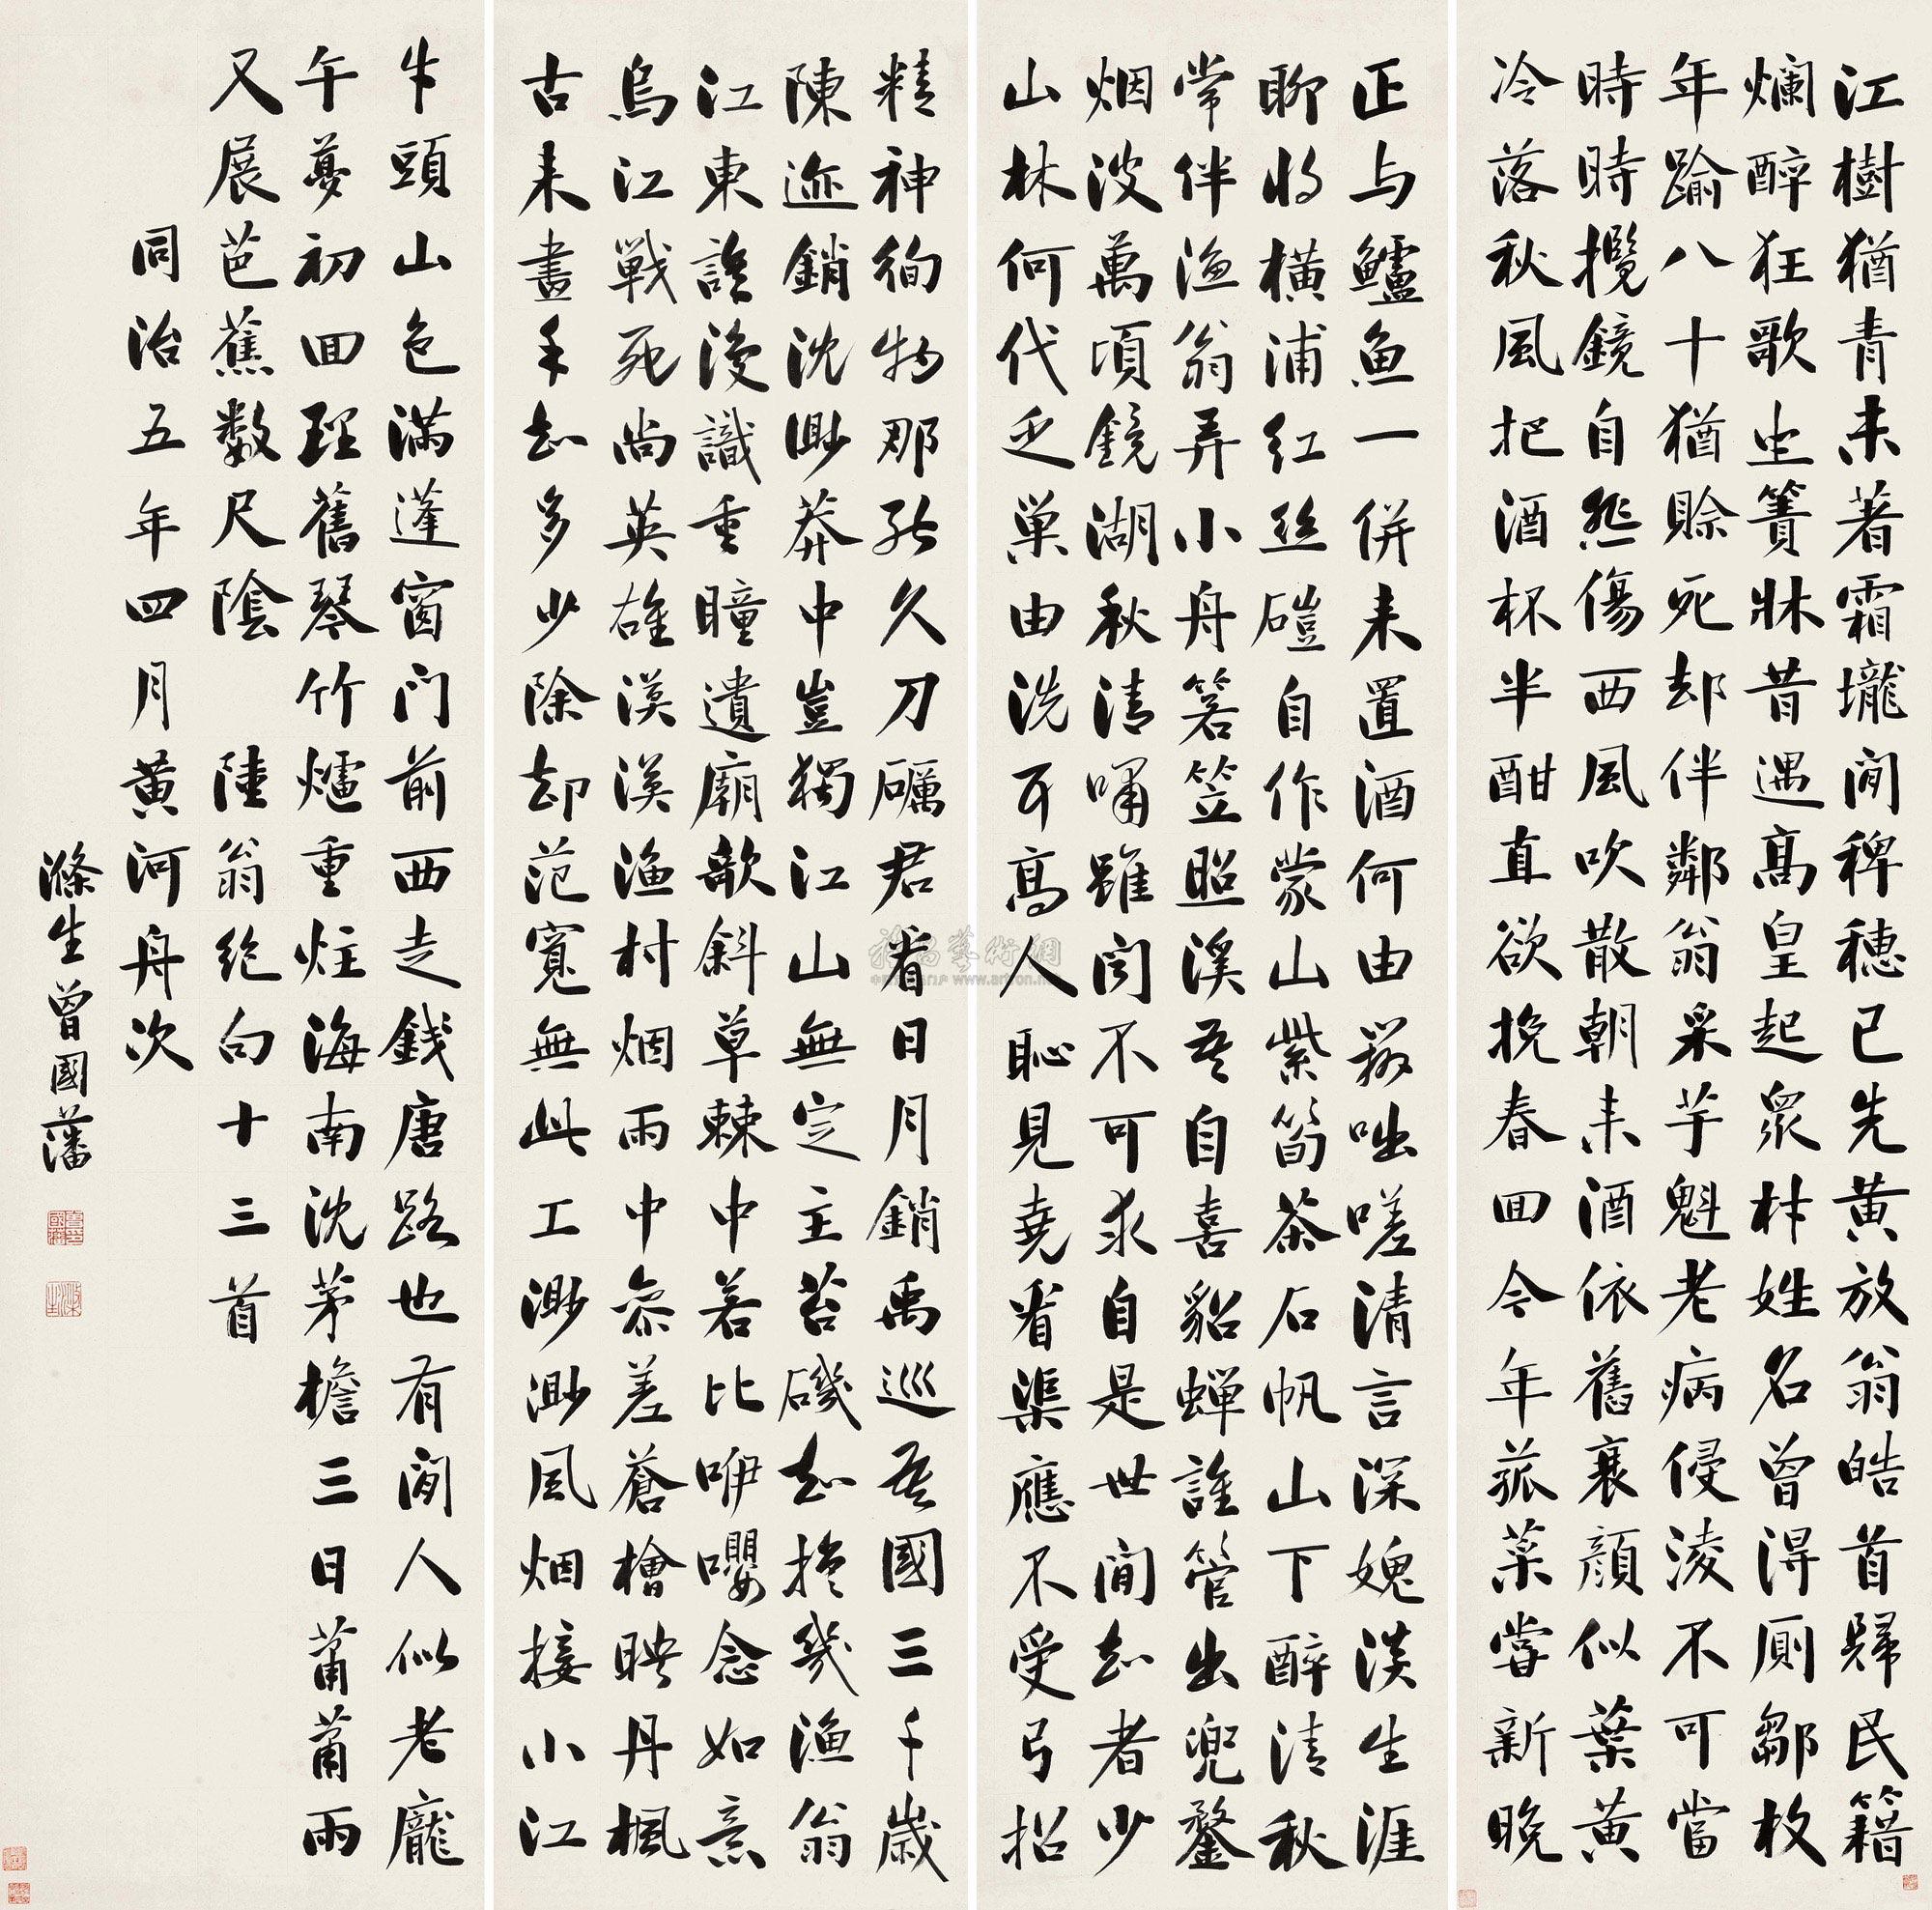 江樹猶青未著霜壠間稗穗已先黃放翁皓首歸民籍
爛醉狂歌坐簀牀昔遇高皇起眾材姓名曾得廁鄒枚
年踰八十猶賒死却伴鄰翁采芋魁老病侵淩不可當
時時攬鏡自悲傷西風吹散朝来酒依舊衰顏似葉黃
冷落秋風把酒杯半酣直欲挽春回今年菰菜嘗新晚
正与鱸魚一併来置酒何由辦咄嗟清言深媿淡生涯
聊將橫浦紅丝磑自作蒙山紫筍茶石帆山下醉清秋
常伴漁翁弄小舟箬笠照溪吾自喜貂蟬誰管出兜鍪
烟波萬頃鏡湖秋清嘯雖聞不可求自是世間知者少
山林何代乏巢由洗耳高人恥見堯看渠應不受弓招
精神徇物那能久刀礪君看日月銷禹巡吾國三千歲
陳迹銷沈渺莽中豈獨江山無定主苔磯知換幾漁翁
江東誰復識重瞳遺廟欹斜草棘中若比咿嚶念如意
烏江戰死尚英雄漠漠漁村烟雨中參差蒼檜映丹楓
古来畫手知多少除却范寬無此工渺渺風烟接小江
牛頭山色滿蓬窗門前西走錢唐路也有閒人似老龐
午夢初回理舊琴竹爐重炷海南沈茅檐三日蕭蕭雨
又展芭蕉數尺陰 陸翁絕句十三首
同治五年四月黃河舟次
滌生曾國藩